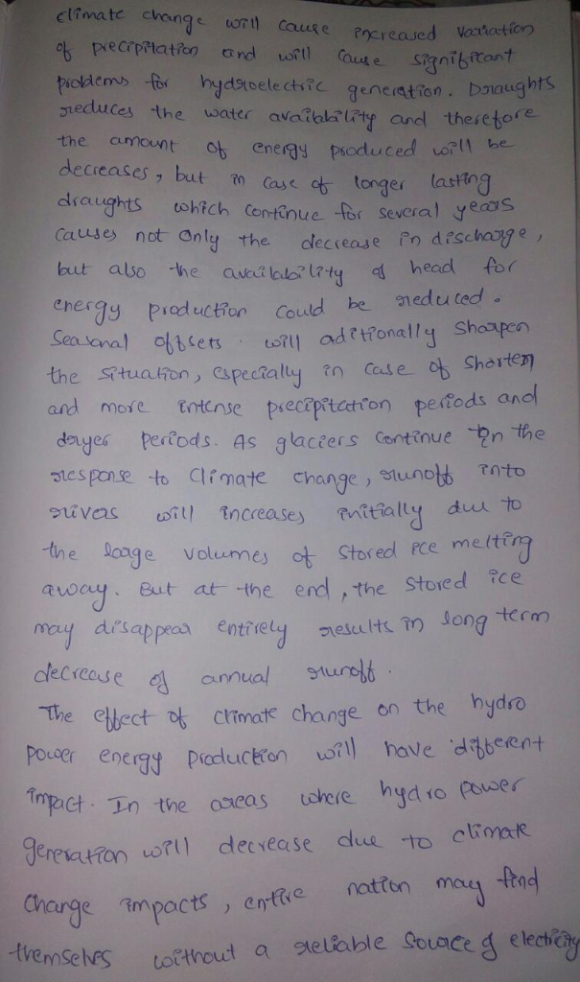 climate change will cause increased variation
of precipitation and will cause significant
problems for hydroelectric generation. Draughts
reduces the water availability and therefore
the amount of energy produced will be
decreases, but in case of longer lasting
draughts which continue for several years
causes not only the decrease in discharge,
but also the availability of head for
energy production could be reduced.
Seasonal offsets will aditionally sharpen
the situation, especially in case of shorten
and more intense precipitation periods and
dryer periods. As glaciers continue in the
response to climate change, runoff into
rivers will increases initially due to
the large volumes of stored ice melting
away. But at the end, the stored ice
may disappear entirely results in long term
decrease of annual runoff.
The effect of climate change on the hydro
power energy production will have different
impact. In the areas where hydro power
generation will decrease due to climate
change impacts, entire nation may find
themselves without a reliable source of electricity